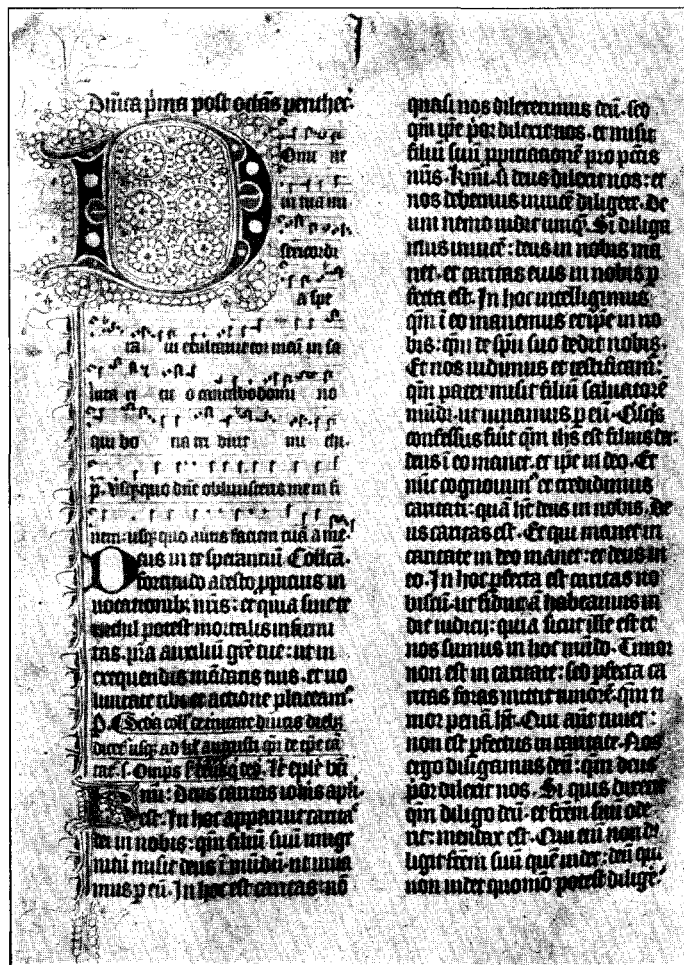 Dñica p̃ma post octãs penthec̃.
Domi ne
in tua mi
sericordi
a spe
ra ui exultauit cor meũ in sa
lutari tuo cantabo domi no
qui bo na tri buit mi chi.
p̃. Usq̢quo dñe obliuisceris me in fi
nem: usq̢quo auertis faciem tuã a me.
Deus in te sperantiũ Collcã.
fortitudo adesto ꝓpicius in
uocationib; nr̃is: et quia sine te
nechil potest mortalis infirmi
tas. p̃ta auxiliũ gr̃e tue: ut in
exequendis mãdatis tuis. et uo
luntate tibi et actione placeam⁹.
dicet᷑ usq̢ ad
est. In hoc apparuit carita⁹
dei in nobis: qm̃ filiũ suũ unige
nitũ misit deus ĩ mũdũ. ut uiua
mus p eũ. In hoc est caritas: nõ
quasi nos dilexerimus deũ. sed
qm̃ ip̃e p̓or dilexit nos. et misit
filiũ suũ ꝓpiciationẽ pro pc̃tis
nr̃is. Kmi. si deus dilexit nos: et
nos debemus inuicẽ diligere. De
um nemo uidit umq̃. Si diliga
mus inuicẽ: deus in nobis ma
net. et caritas eius in nobis p
fecta est. In hoc intelligimus
qm̃ ĩ eo manemus et ip̃e in no
bis: qm̃ de sp̃u suo dedit nobis.
Et nos uidimus et testificam⁹:
qm̃ pater misit filiũ saluatorẽ
mũdi. ut uiuamus p eũ. Q̓sq̓s
confessus fuit qm̃ ih̃s est filius dei:
deus ĩ eo manet. et ip̃e in deo. Et
nũc cognouim⁹ et credidimus
caritati: quã hẽt deus in nobis. De
us caritas est. Et qui manet in
caritate in deo manet: et deus in
eo. In hoc pfecta est caritas no
biscũ. ut fiduc̃ã habeamus in
die iudicij: quia sicut ille est et
nos sumus in hoc mũdo. Timor
non est in caritate: sed pfecta ca
ritas foras mittit timorẽ. qm̃ ti
mor penã hẽt. Qui aũt timet:
non est pfectus in caritate. Nos
ergo diligamus deũ: qm̃ deus
p̓or dilexit nos. Si quis dixerit
qm̃ diligo deũ. et fr̃em suũ ode
rit: mendax est. Qui em̃ non di
ligit fr̃em suũ quẽ uidet: deũ quẽ
non uidet quomõ potest dilige᷑.